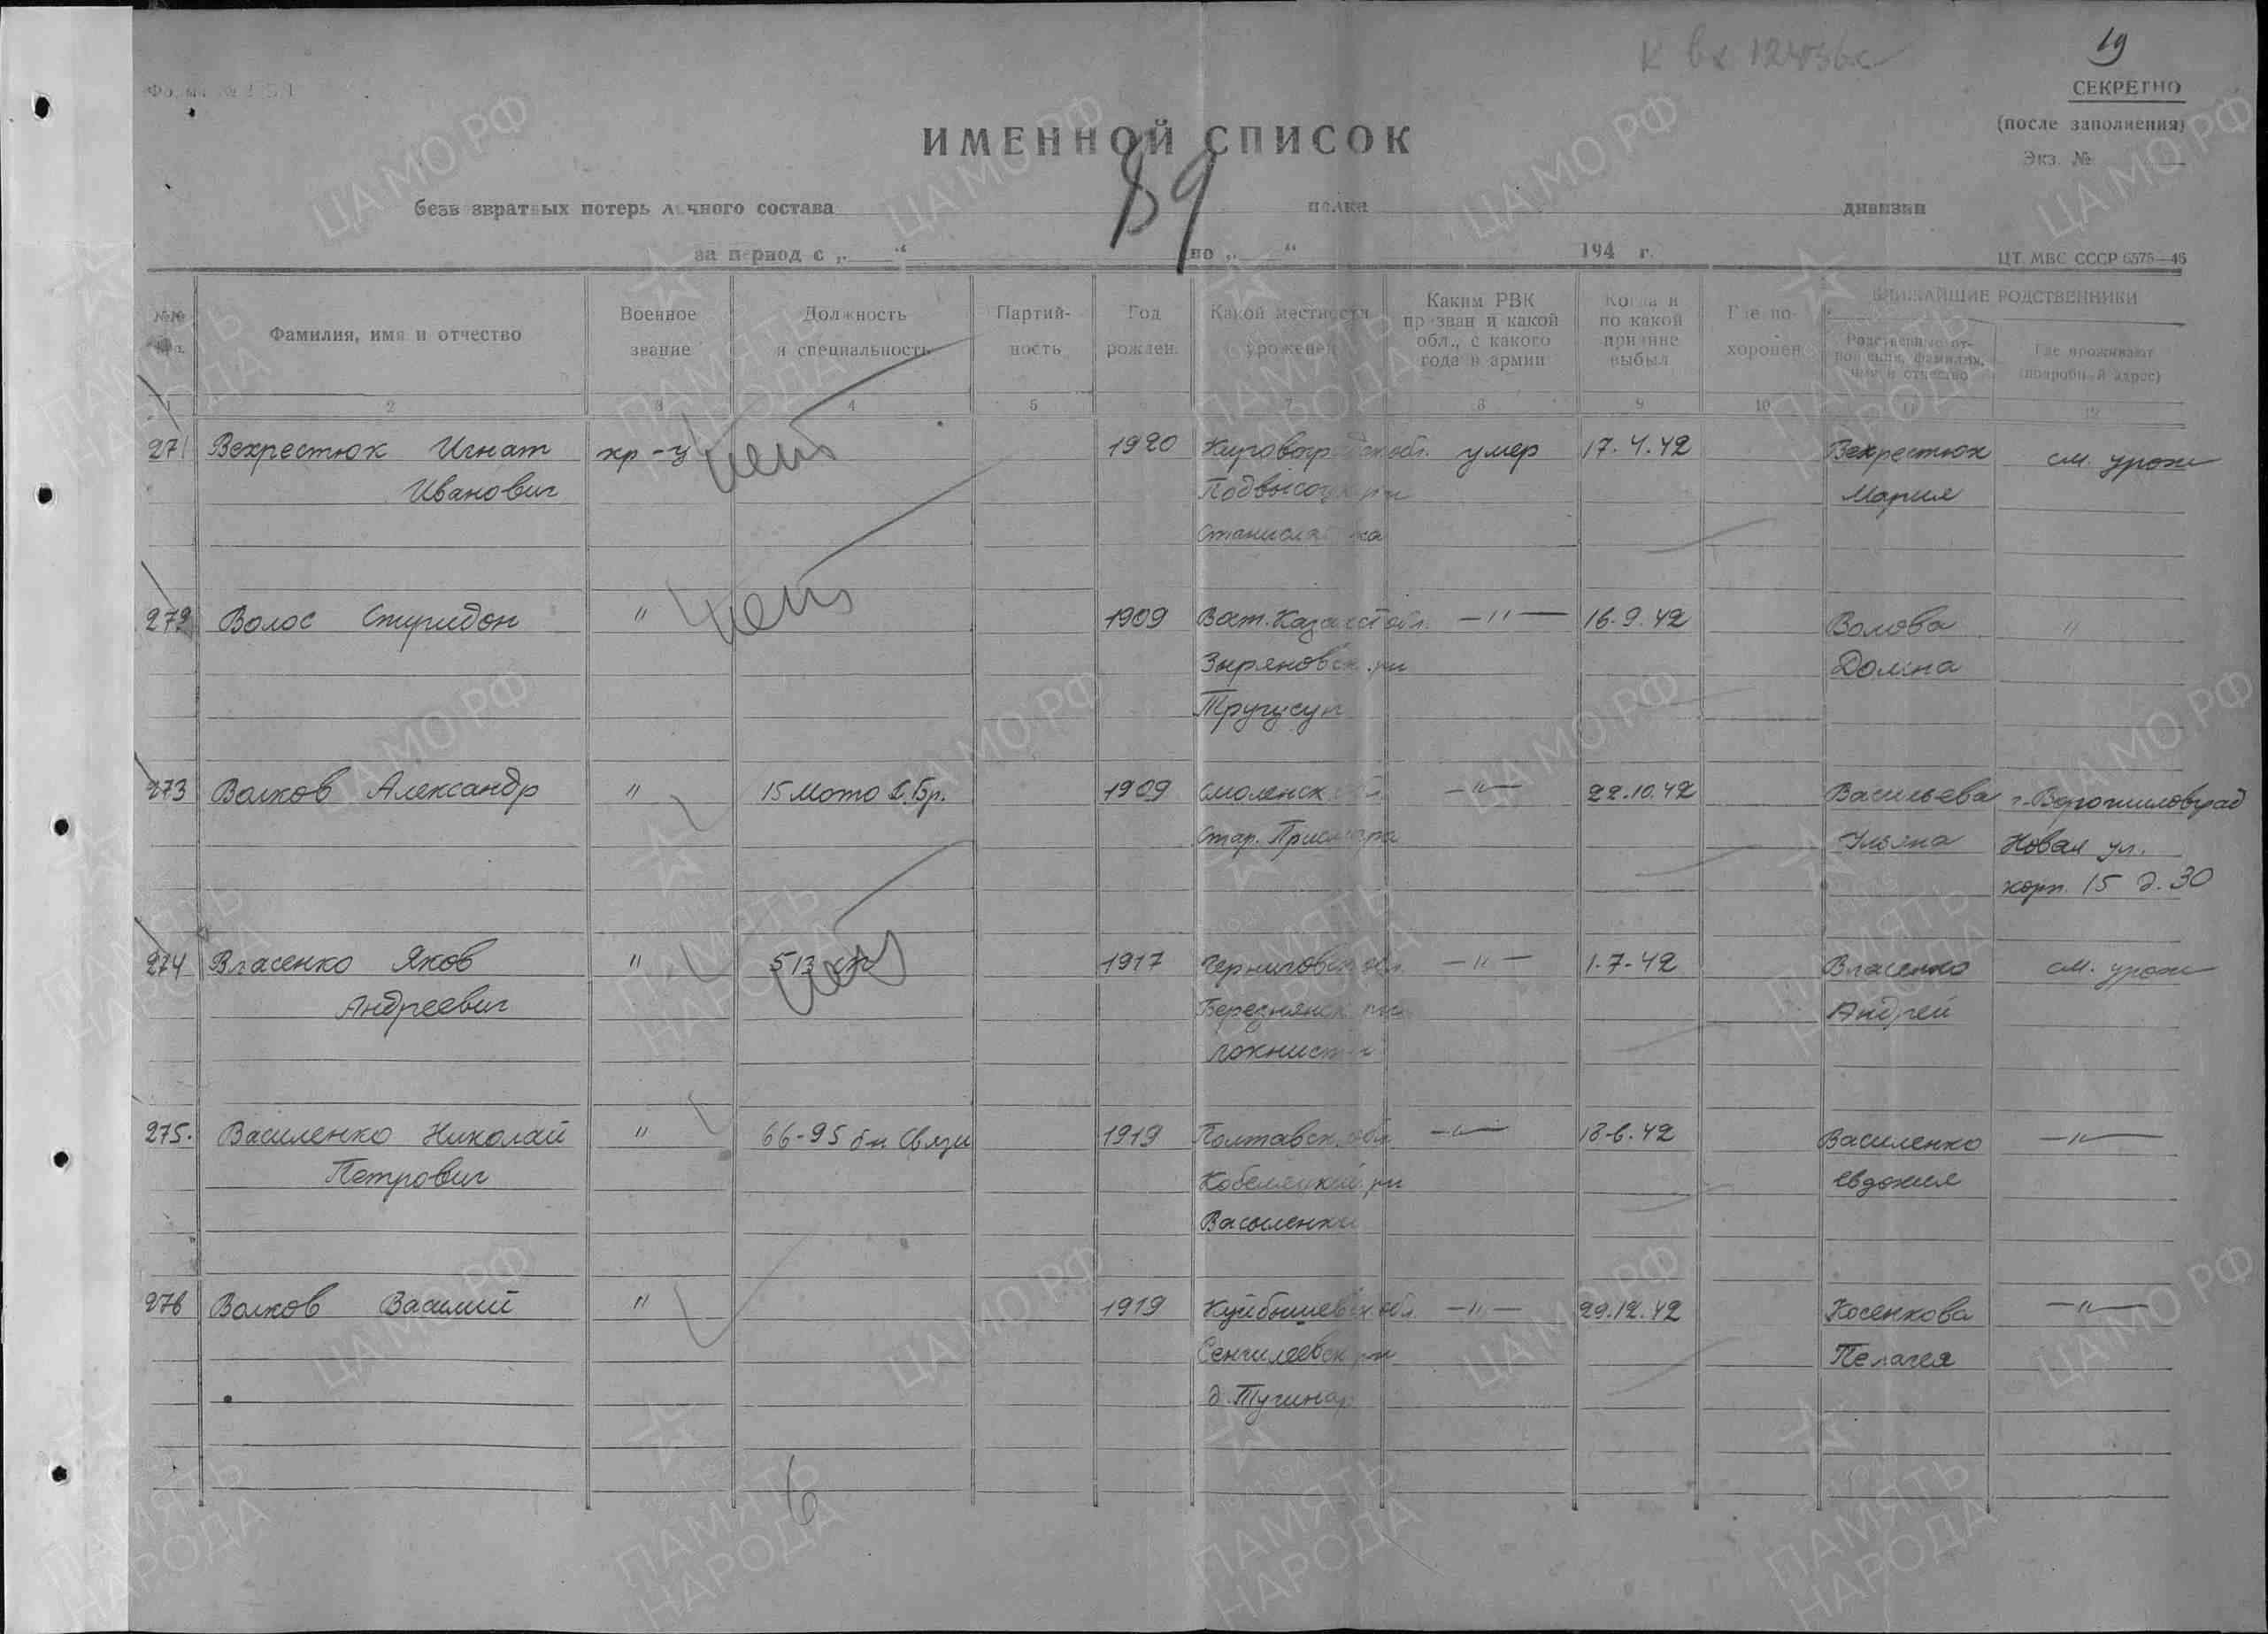 К вх 12456с
19
СЕКРЕТНО
(после заполнения)
Экз. №
ИМЕННОЙ СПИСОК
89
безвозвратных потерь личного состава полка дивизии
за период с „ “ по „ “ 194 г.
ЦТ. МВС СССР 6575—46
№№ Фамилия, имя и отчество Военное звание Должность и специальность Партийность Год рожден. Какой местности уроженец Каким РВК призван и какой обл., с какого года в армии Когда и по какой причине выбыл Где похоронен БЛИЖАЙШИЕ РОДСТВЕННИКИ
Родственное отношение, фамилия, имя и отчество Где проживают (подробный адрес)
1 2 3 4 5 7 8 9 10 11 12
271 Вехрестюк Игнат кр-ц нет 1920 обл. умер 17.4.42 Вехрестюк см. урож
Иванович Подвысоцк рн Мария
Станиславка
272 Волос Спиридон " нет 1909 Вост. Казахст обл. —"— 16.9.42 Волова "
Зыряновск. рн Долина
Тургусун
273 Волков Александр " 15 Мото С. Бр. 1909 Смоленск обл. —"— 22.10.42 Васильева г. Ворошиловград
Стар. Ульяна Новая ул.
корп. 15 д. 30
274 Власенко Яков " 513 нет 1917 Черниговск обл. —"— 1.7.42 Власенко см. урож
Андреевич Березнянск рн Андрей
Локнисты
275. Василенко Николай " 66-95 бн. Связи 1919 Полтавск. обл. —"— 18.6.42 Василенко —"—
Петрович Кобеляцкий рн Евдокия
Василенки
276 Волков Василий " 1919 Куйбышевск обл. —"— 29.12.42 Косенкова —"—
Сенгилеевск рн Пелагея
д. Тушинар
6
ЦАМО РФ
ПАМЯТЬ НАРОДА